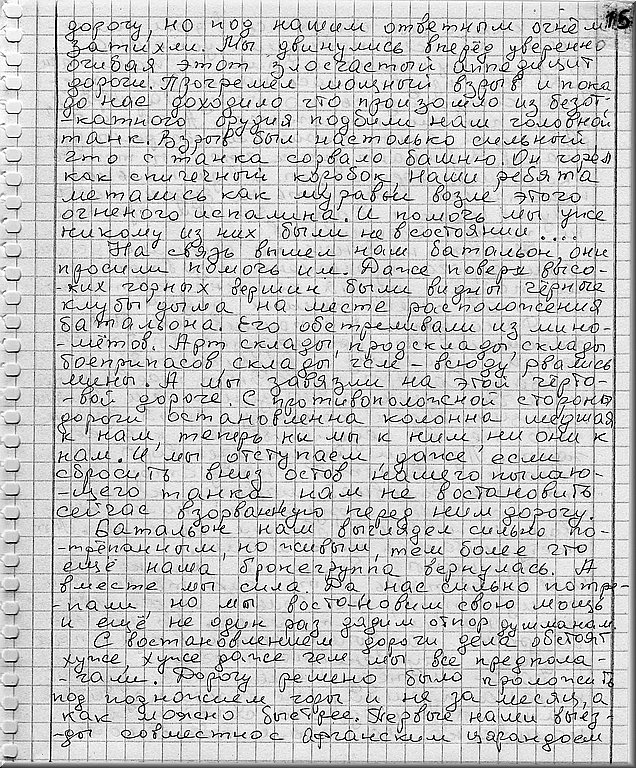 15
дорогу, но под нашим ответным огнём
затихли. Мы двинулись вперёд уверенно
огибая этот злосчастый аппедицит
дороги. Прогремел мощный взрыв и пока
до нас доходило что произошло из безот-
-катного орудия подбили наш головной
танк. Взрыв был настолько сильный
что с танка сорвало башню. Он горел
как спичечный коробок, наши ребята
метались как муравьи возле этого
огненого испалина. И помочь мы уже
никому из них были не в состоянии....
На связь вышел наш батальон, они
просили помочь им. Даже поверх высо-
-ких горных вершин были видны чёрные
клубы дыма на месте расположения
батальона. Его обстреливали из мино-
-мётов. Арт склады, продсклады, склады
боеприпасов, склады ГСМ - всюду рвались
мины. А мы завязли на этой чёрто-
-вой дороге. С противоположной стороны
дороги остановленна колонна шедшая
к нам, теперь ни мы к ним, ни они к
нам. И мы отступаем, даже если
сбросить вниз остов нашего пылаю-
-щего танка нам не востановить
сейчас взорванную перед ним дорогу.
Батальон наш выглядел сильно по-
-трёпанным, но живым, тем более что
ещё наша бронегруппа вернулась. А
вместе мы сила. Да нас сильно потре-
-пали, но мы востановим свою мощь
и ещё не один раз дадим отпор душманам.
С востановлением дороги дела обстоят
хуже, хуже даже чем мы все предпола-
-гали. Дорогу решено было проложить
под подножием горы и не за месяц, а
как можно быстрее. Первые наши выез-
-ды совместно с Афганским царандоем